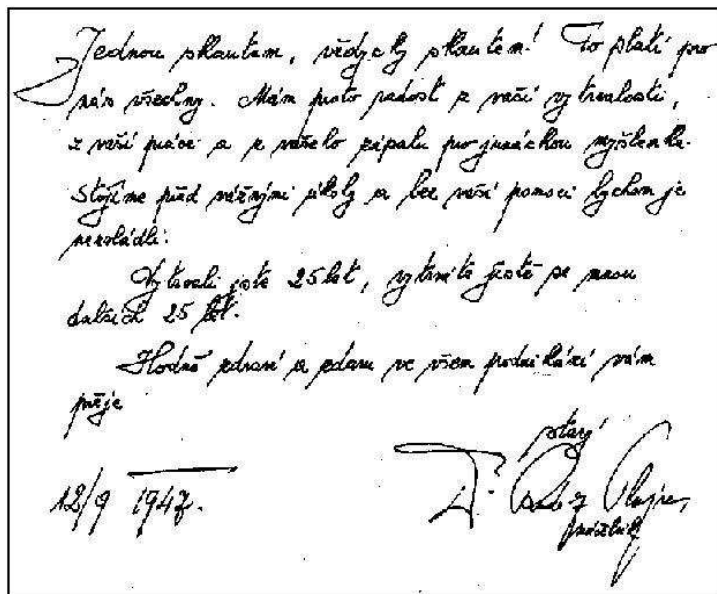 Jednou skautem, vždycky skautem! To platí pro
nás všechny. Mám proto radost z vaší vytrvalosti,
z vaší práce a z vašeho zápalu pro junáckou myšlenku.
Stojíme před vážnými úkoly a bez vaší pomoci bychom je
nezvládli.
Vytrvali jste 25 let, vytrvejte ještě se mnou
dalších 25 let.
Hodně zdraví a zdaru ve všem podnikání vám
přeje
starý
12/9 1947.
Dr.